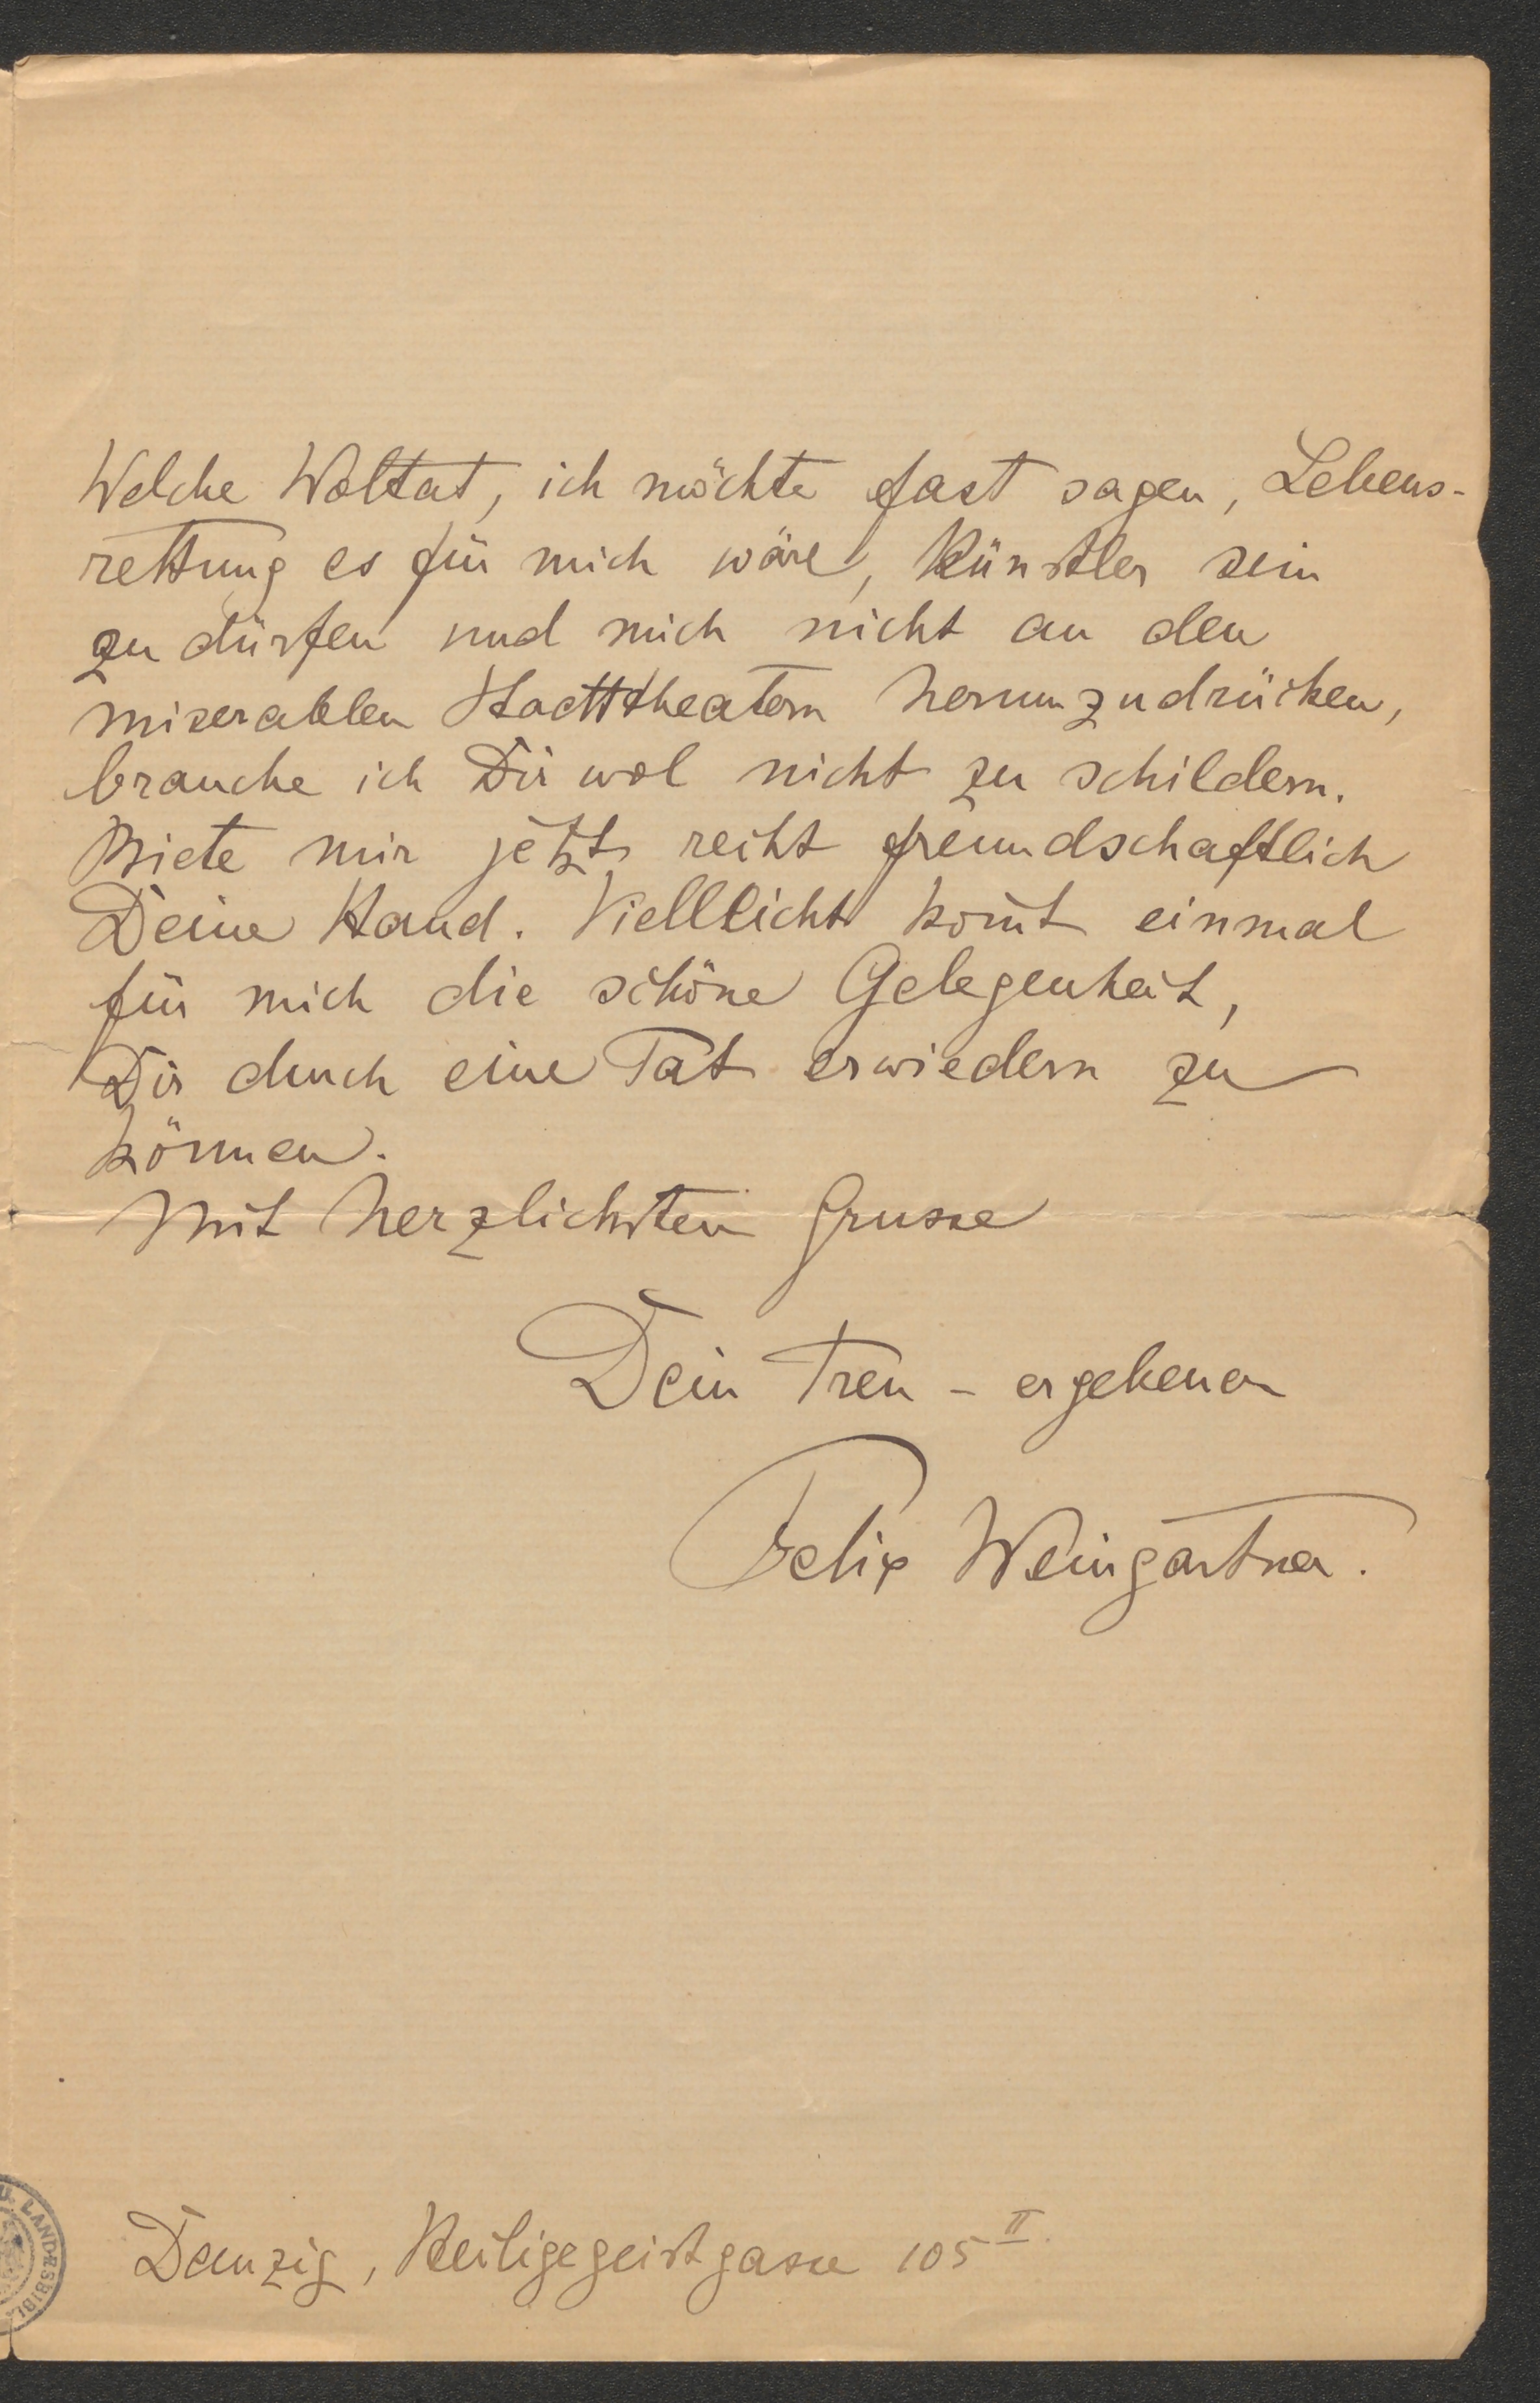 Welche Woltat, ich möchte fast sagen, Lebens-
rettung es für mich wäre, Künstler sein
zu dürfen und mich nicht an den
miserablen Stadttheatern herumzudrücken,
brauche ich Dir wol nicht zu schildern.
Biete mir jetzt recht freundschaftlich
Deine Hand. Vielleicht kom̅t einmal
für mich die schöne Gelegenheit,
Dir durch eine Tat erwiedern zu
können.
Mit herzlichsten Grusse
Dein treu - ergebener
Felix Weingartner.
LANDESBIBL
Danzig, Heiligegeistgasse 105 II.